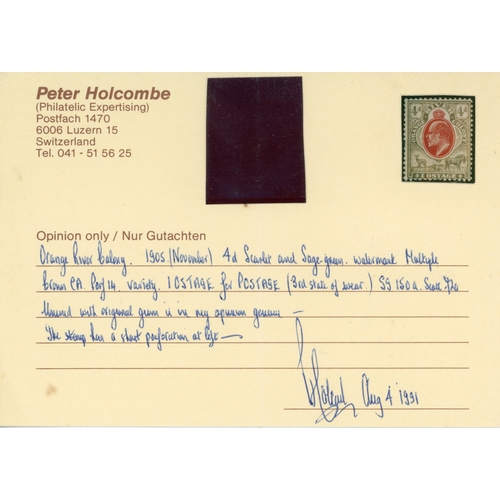 Peter Holcombe
(Philatelic Expertising)
Postfach 1470
6006 Luzern 15
Switzerland
Tel. 041 - 51 56 25
4d 4d
POSTAGE
Opinion only / Nur Gutachten
Orange River Colony. 1905 (November) 4d Scarlet and Sage-green. Watermark Multiple
Crown CA. Perf 14. Variety. IOSTAGE for POSTAGE (3rd state of wear) SG 150a.
Unused with original gum is in my opinion genuine —
The stamp has a short perforation at left —
Aug 4 1991